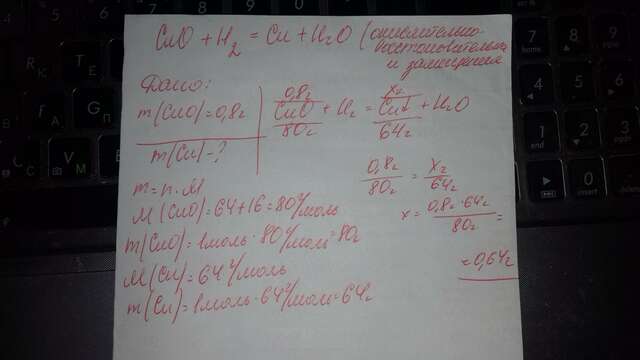 CuO + H2 = Cu + H2O (окислительно-
восстановительная
и замещения
Дано:
m(CuO)=0,8г
m(Cu)-?
0,8г xг
CuO + H2 = Cu + H2O
80г 64г
m=n·M
M(CuO)=64+16=80г/моль
m(CuO)=1моль·80г/моль=80г
M(Cu)=64г/моль
m(Cu)=1моль·64г/моль=64г
0,8г/80г = xг/64г
x=0,8г·64г/80г=
=0,64г
7 home
8
9 pgup
4
5
6
1 end
2
3 pgdn
0 insert